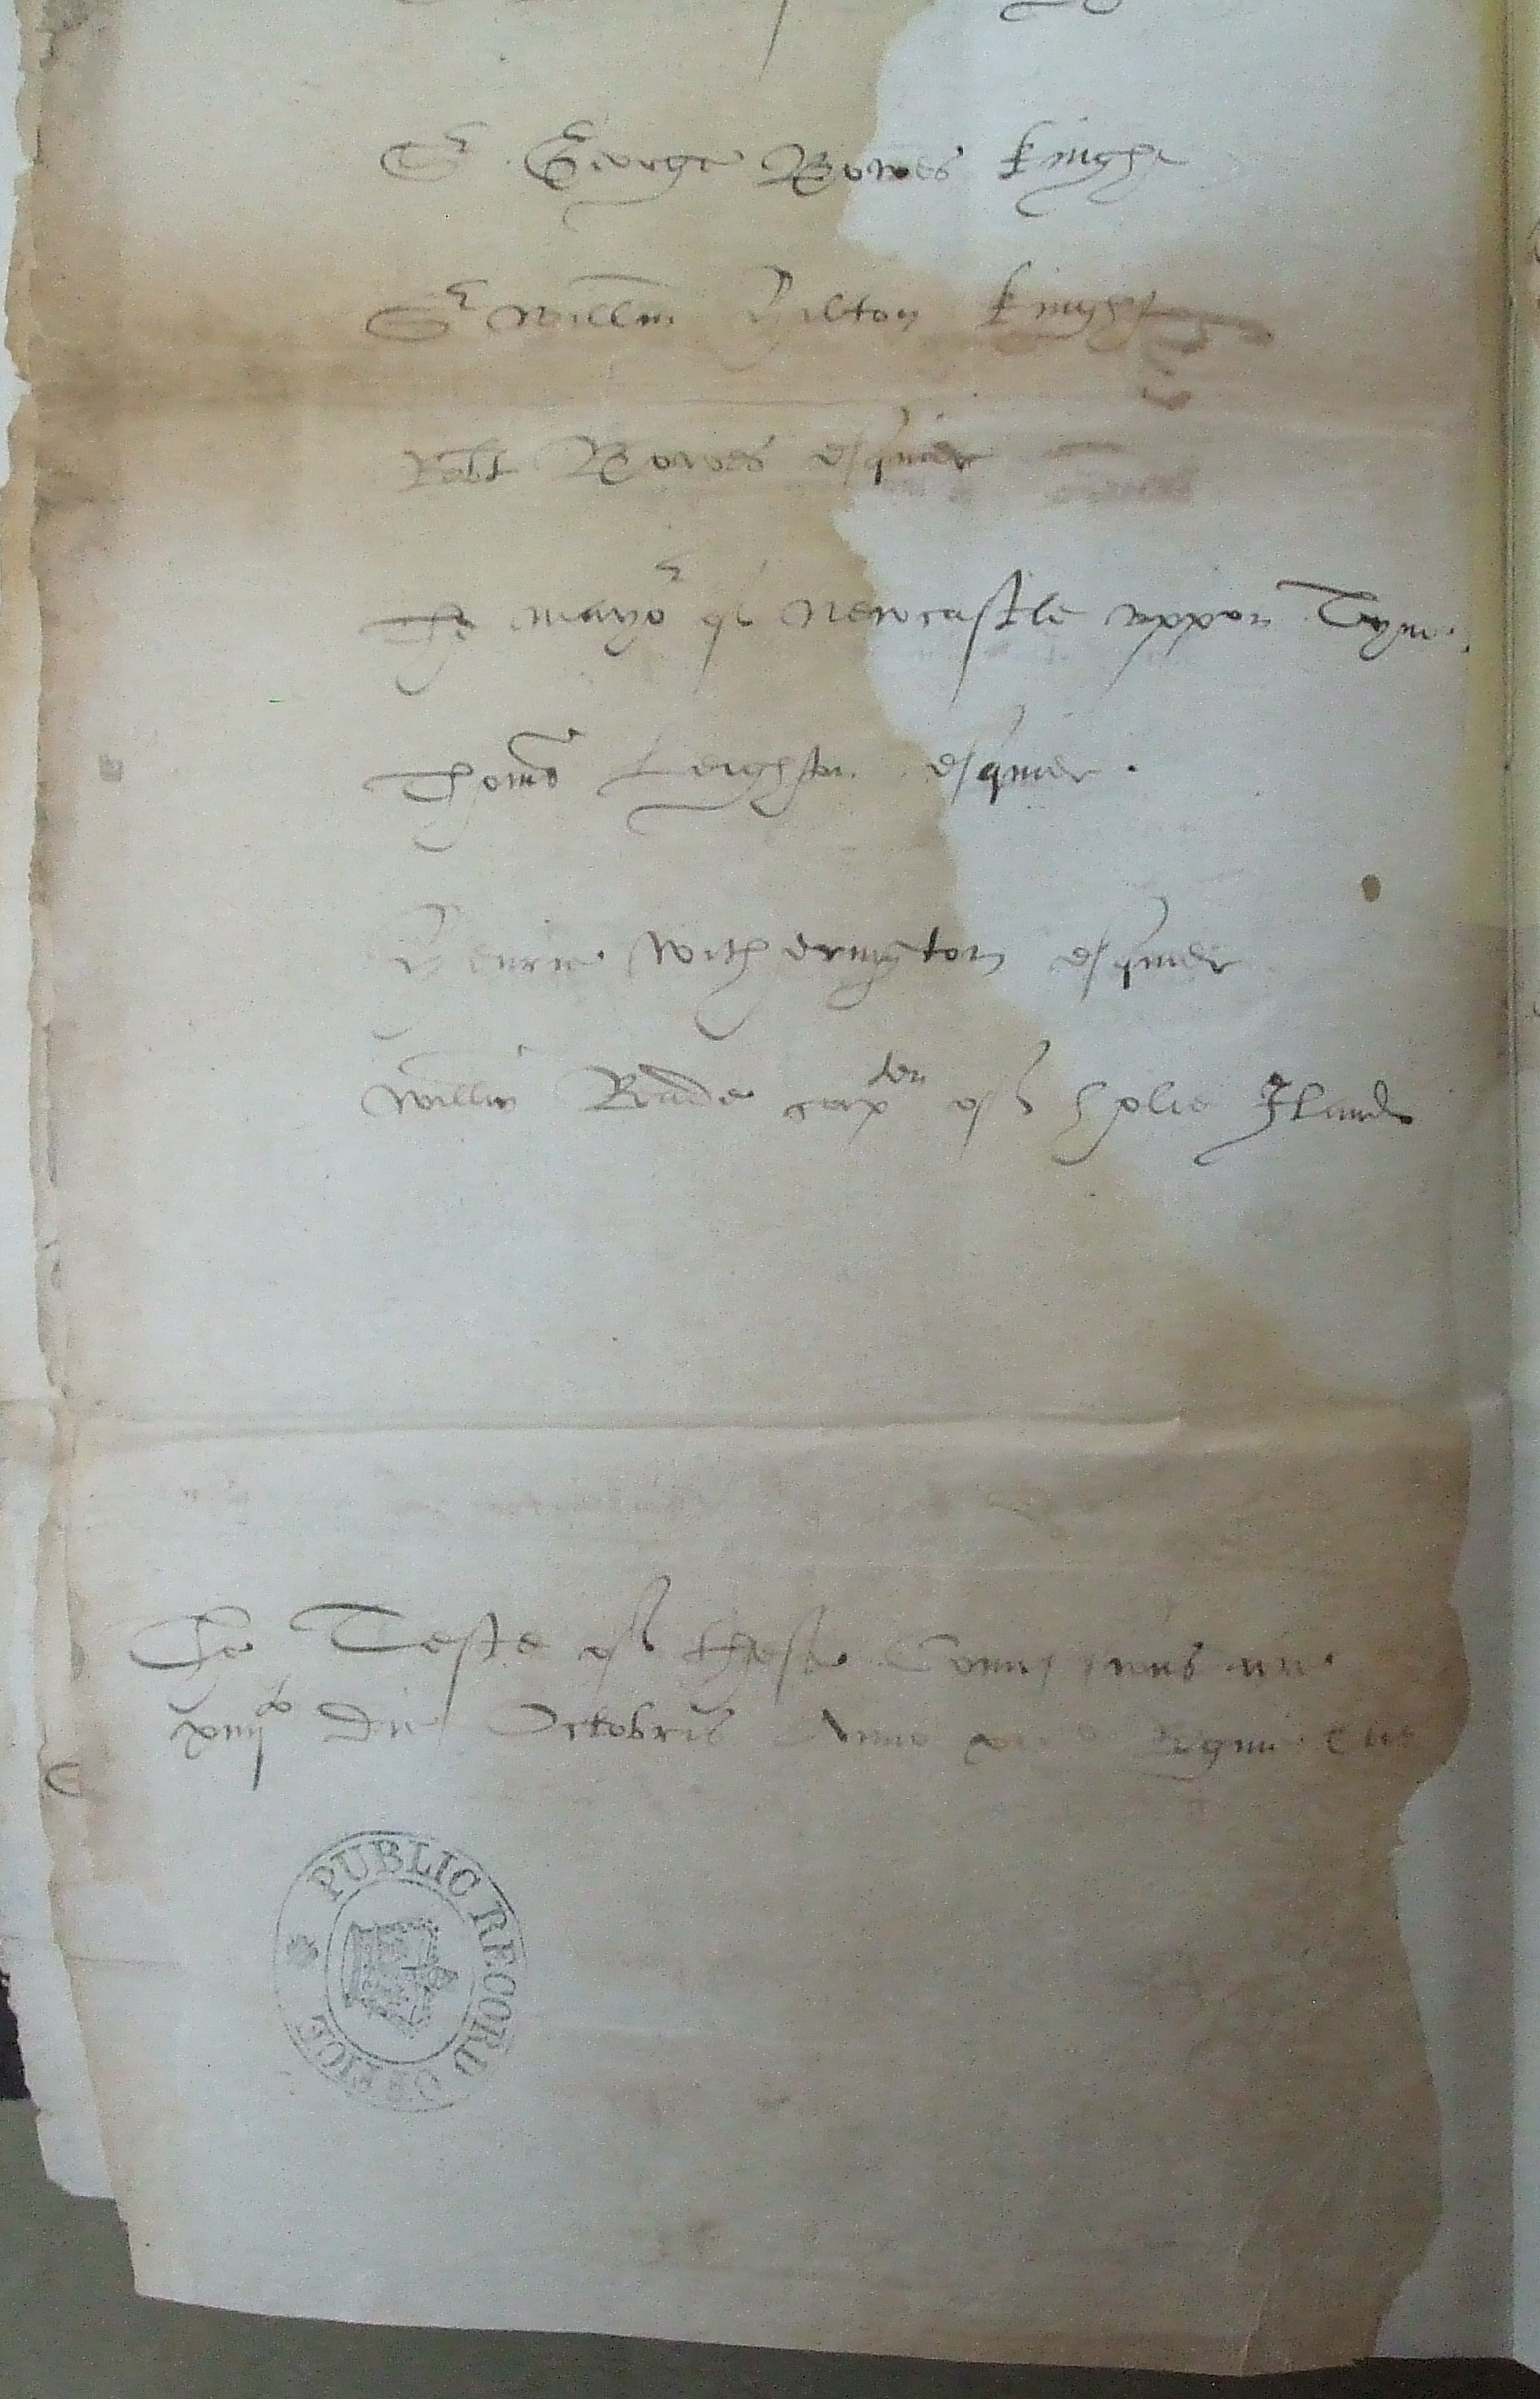 Sr George Bowes knight
Sr Willm Hilton knight
Robt Bowes esquier
The mayor of Newcastle uppon Tyne
Thoms Leighton esquier
Henrie Witherington esquier
Willm Reade capten of holie Iland
The Teste of these Comissions
xiiijto die Octobris Anno Regni
PUBLIC RECORD OFFICE